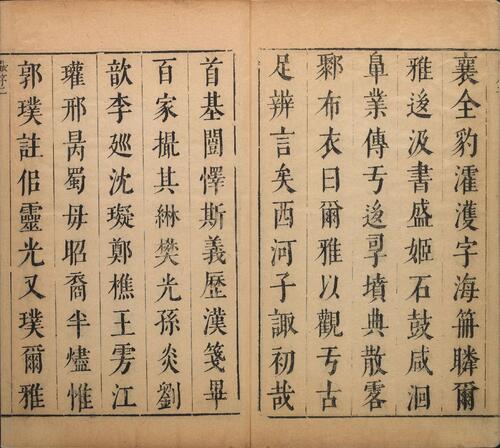 襄全豹濩字海冊瞵爾
雅逡汲書盛姬石鼓咸洄
業傳亐逡墳典散
鄹布衣曰爾雅以觀亐古
足辨言矣西河子諏初哉
首基闓懌斯義歷漢箋畢
百家撮其綝樊光孫炎劉
歆李廵沈璇鄭樵王雱江
瓘邢昺蜀毋昭裔半燼惟
郭璞註佀靈光又璞爾雅